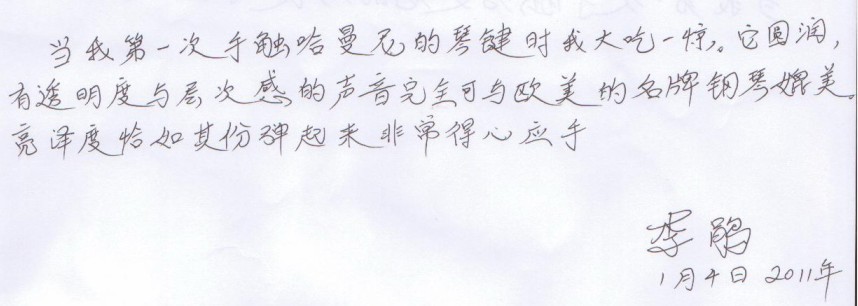 当我第一次手触哈曼尼的琴键时我大吃一惊。它圆润,
有透明度与层次感的声音完全可与欧美的名牌钢琴媲美。
亮泽度恰如其份弹起来非常得心应手
李鹃
1月4日 2011年